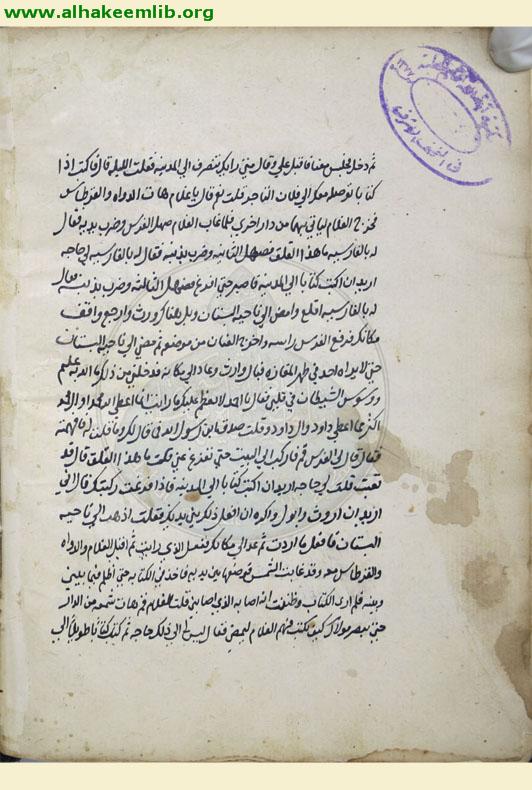 www.alhakeemlib.org
ثم دخل المجلس معنا فاقبل علي وقال متى رايك تنصرف الى المدينه فقلت الليله قال فاكتب اذا
كتابا توصله معك الى فلان التاجر قلت نعم قال يا غلام هات الدواه والقرطاس
فخرج الغلام لياتي بهما من دار اخرى فلما غاب الغلام صهل الفرس وضرب بذنبه فقال
له بالفارسيه ما هذا القلق فصهل الثانيه وضرب بذنبه فقال له بالفارسيه لي حاجه
اريد ان اكتب كتابا الى المدينه فاصبر حتى افرغ فصهل الثالثه وضرب بذنبه فقال
له بالفارسيه اقلع وامض الى ناحيه البستان وبل هناك وروث وارجع واقف
مكانك فرفع الفرس راسه واخرج العنان من موضعه ثم مضى الى ناحيه البستان
حتى لا يراه احد في ظهر فبال وراث وعاد الى مكانه فدخلني من ذلك ما الله به عليم
ووسوس الشيطان في قلبي فقال يا احمد لا يعظم عليك ما رايت ان ما اعطى الله محمدا وال محمد
اكثر مما اعطى داود وال داود وقلت صدق ابن رسول الله فما قال لك وما قلت له فما فهمته
فقال قال لي الفرس قم فاركب الى البيت حتى تفرغ عني قلت ما هذا القلق قال قد
تعبت فقلت لي حاجه اريد ان اكتب كتابا الى المدينه فاذا فرغت ركبتك قال اني
اريد ان اروث وابول واكره ان افعل ذلك بين يديك فقلت اذهب الى ناحيه
البستان فافعل ما اردت ثم عد الى مكانك ففعل الذي رايت ثم اقبل الغلام والدواه
والقرطاس معه وقد غابت الشمس فوضعها بين يديه فاخذ في الكتابه حتى اظلم فيما بيني
وبينه فلم ارى الكتاب وظننت انه اصابه الذي اصابني فقلت للغلام قم هات شمعه من الدار
حتى يبصر مولاك كيف يكتب فهم الغلام ليمضي فقال ليس لي الى ذلك حاجه ثم كتب كتابا طويلا الى